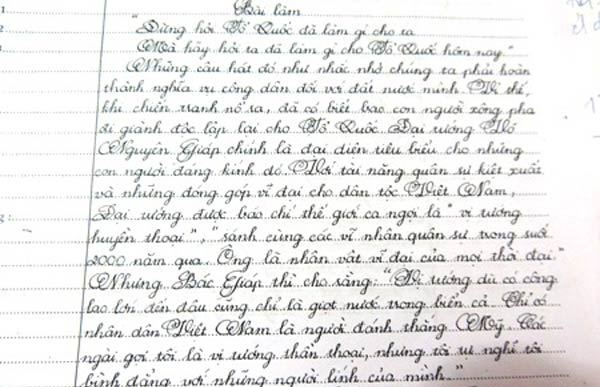 Bài làm
"Đừng hỏi Tổ Quốc đã làm gì cho ta
Mà hãy hỏi ta đã làm gì cho Tổ Quốc hôm nay."
Những câu hát đó như nhắc nhở chúng ta phải hoàn
thành nghĩa vụ công dân đối với đất nước mình. Vì thế,
khi chiến tranh nổ ra, đã có biết bao con người xông pha
đi giành độc lập lại cho Tổ Quốc. Đại tướng Võ
Nguyên Giáp chính là đại diện tiêu biểu cho những
con người đáng kính đó. Với tài năng quân sự kiệt xuất
và những đóng góp vĩ đại cho dân tộc Việt Nam,
Đại tướng được báo chí thế giới ca ngợi là "vị tướng
huyền thoại", "sánh cùng các vĩ nhân quân sự trong suốt
2000 năm qua. Ông là nhân vật vĩ đại của mọi thời đại."
Nhưng Bác Giáp thì cho rằng: "Vị tướng dù có công
lao lớn đến đâu cũng chỉ là giọt nước trong biển cả. Chỉ có
nhân dân Việt Nam là người đánh thắng Mỹ. Các
ngài gọi tôi là vị tướng thần thoại, nhưng tôi tự nghĩ tôi
bình đẳng với những người lính của mình."